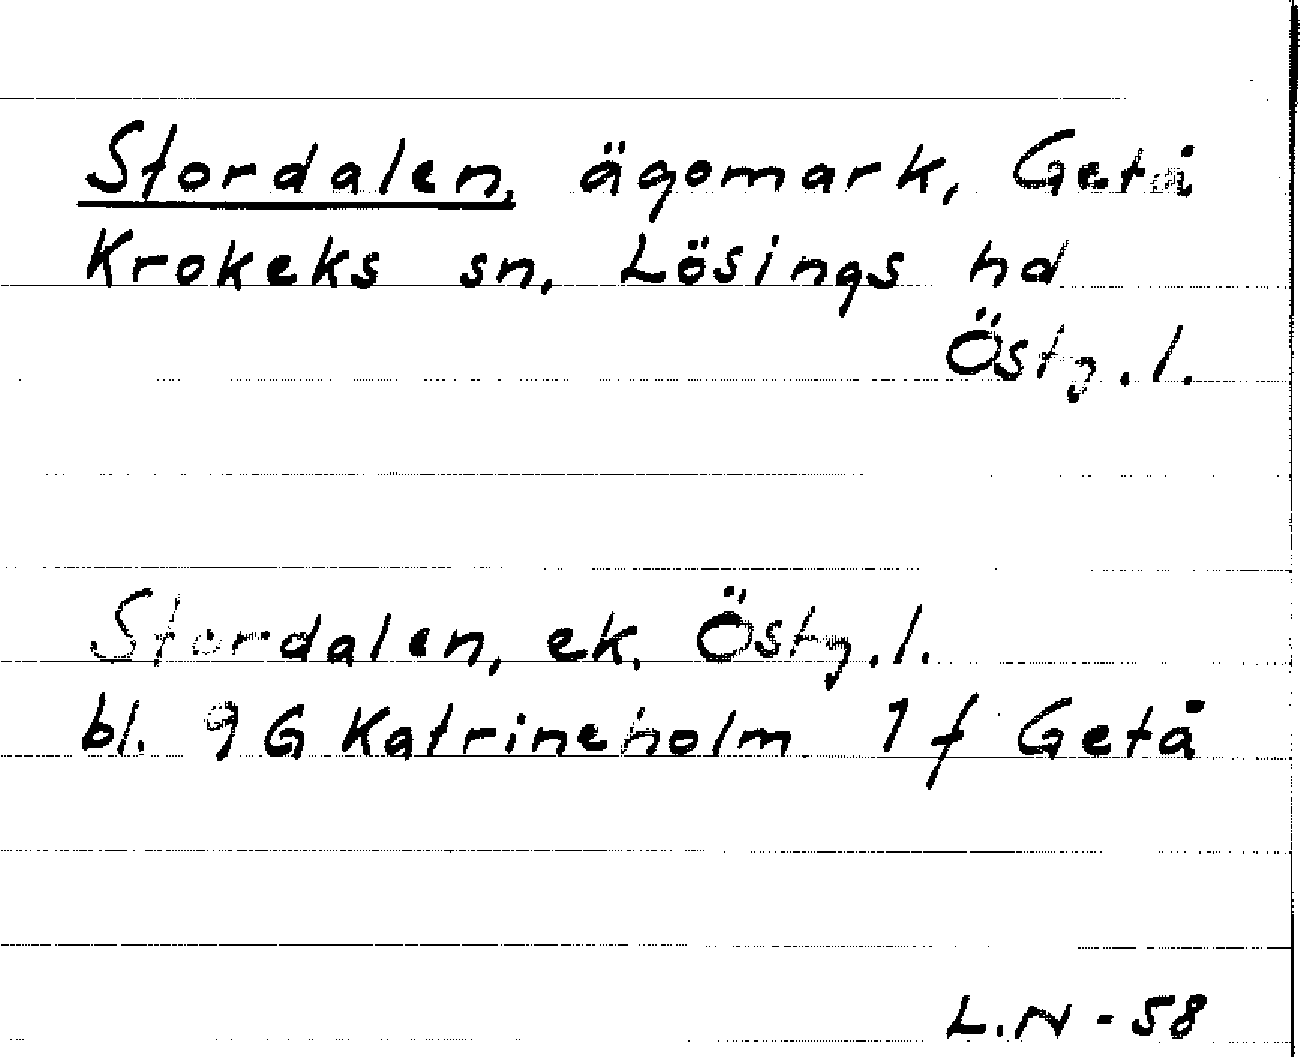 Stordalen, ägomark, Getå
Krokeks sn, Lösings hd
Östg.l.
Stordalen, ek. Östg.l.
bl. 9G Katrineholm 1f Getå
L.N - 58